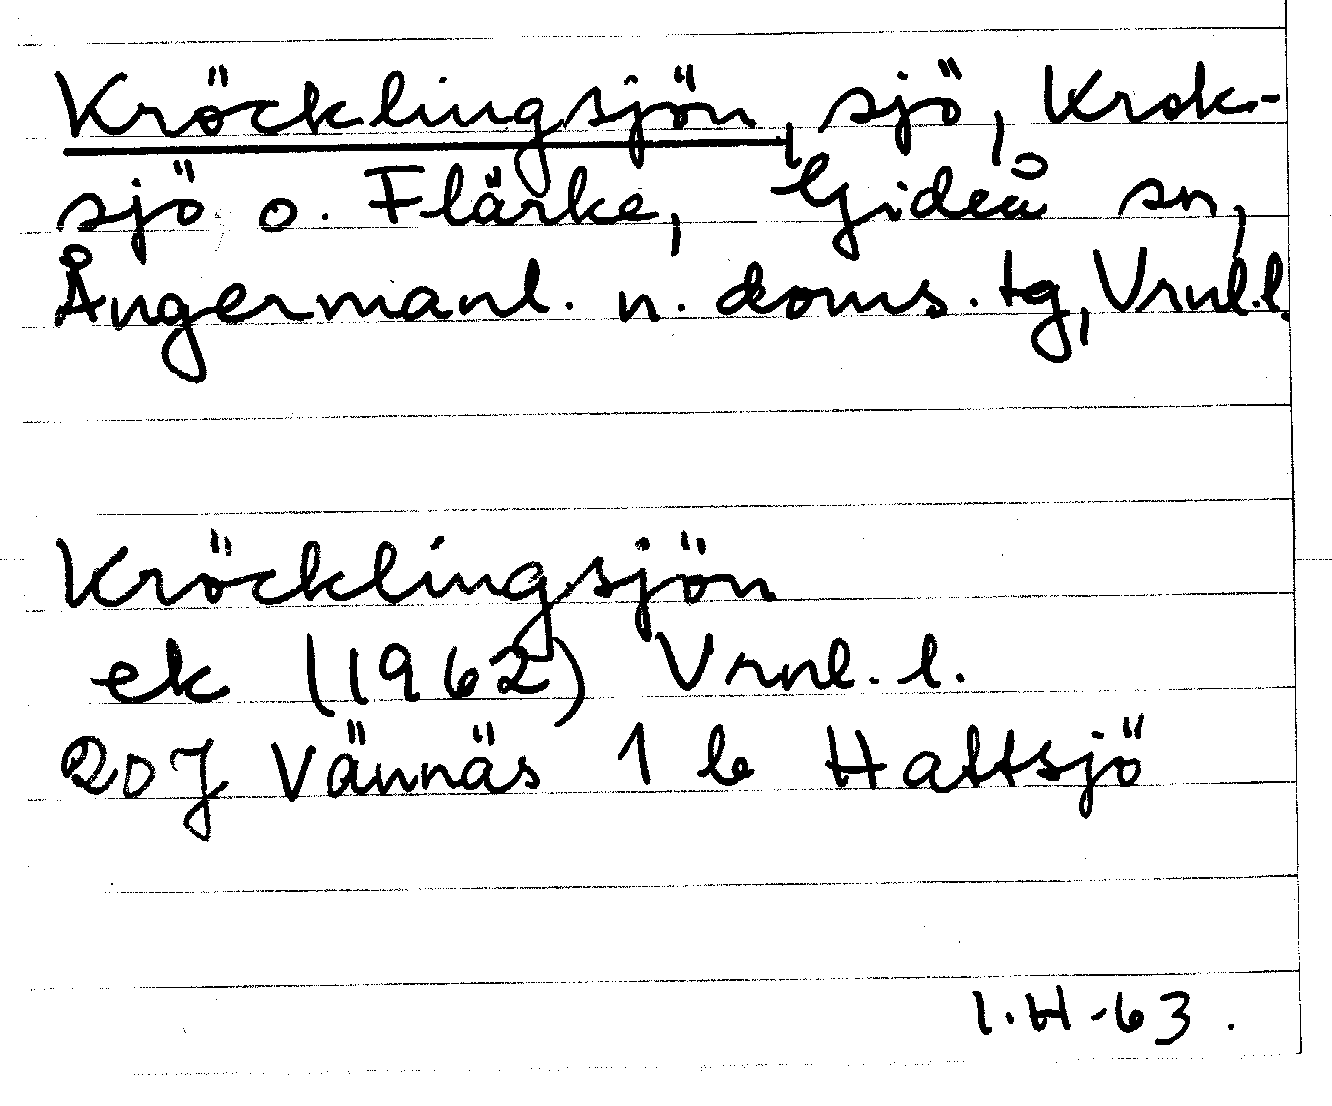 Kröcklingsjön, sjö, Krok-
sjö o. Flärke, Gideå sn,
Ångermanl. n. doms. tg, Vrnl.l.
Kröcklingsjön
ek (1962) Vrnl. l.
20J Vännäs 1 b Hattsjö
I.H-63.